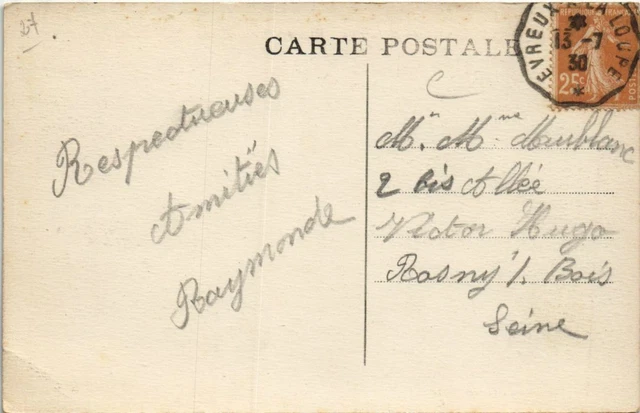 27
CARTE POSTALE
EVREUX A LA LOUPE
13-7
30
RÉPUBLIQUE FRANÇAISE
25c
Respectueuses
Amitiés
Raymonde
C
Mr Mme
2 bis Allée
Victor Hugo
Rosny s/. Bois
Seine